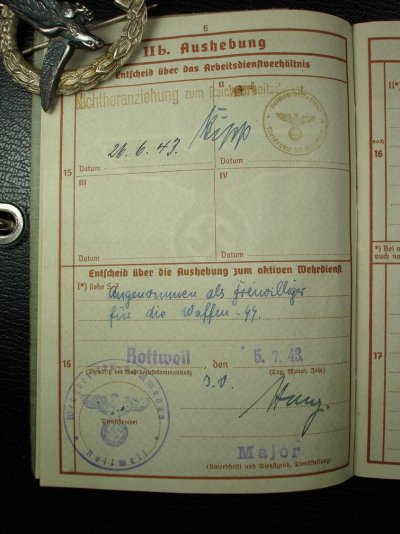 6
IIb. Aushebung
Entscheid über das Arbeitsdienstverhältnis
II
Nichtheranziehung zum Reichsarbeitsdienst
26.6.43.
Datum
Datum
15
III
IV
Datum
Datum
Entscheid über die Aushebung zum aktiven Wehrdienst
I*) siehe S.
Angenommen als Freiwilliger
für die Waffen-SS.
16
Rottweil, den 5.7.43.
(Tag, Monat, Jahr)
J.V.
Dienststempel
Rottweil
Major
(Unterschrift und Dienstgrad, Dienststellung)
II*)
auch
16
*) Bei
auch no
17